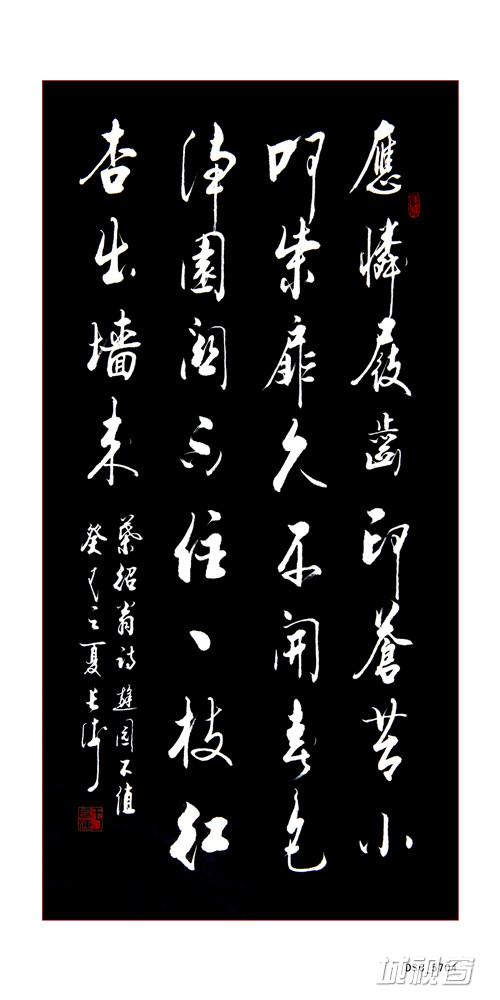 應憐屐齒印蒼苔小
叩柴扉久不開春色
滿園關不住一枝紅
杏出墙来
葉紹翁詩遊園不值
癸巳之夏
城视窗